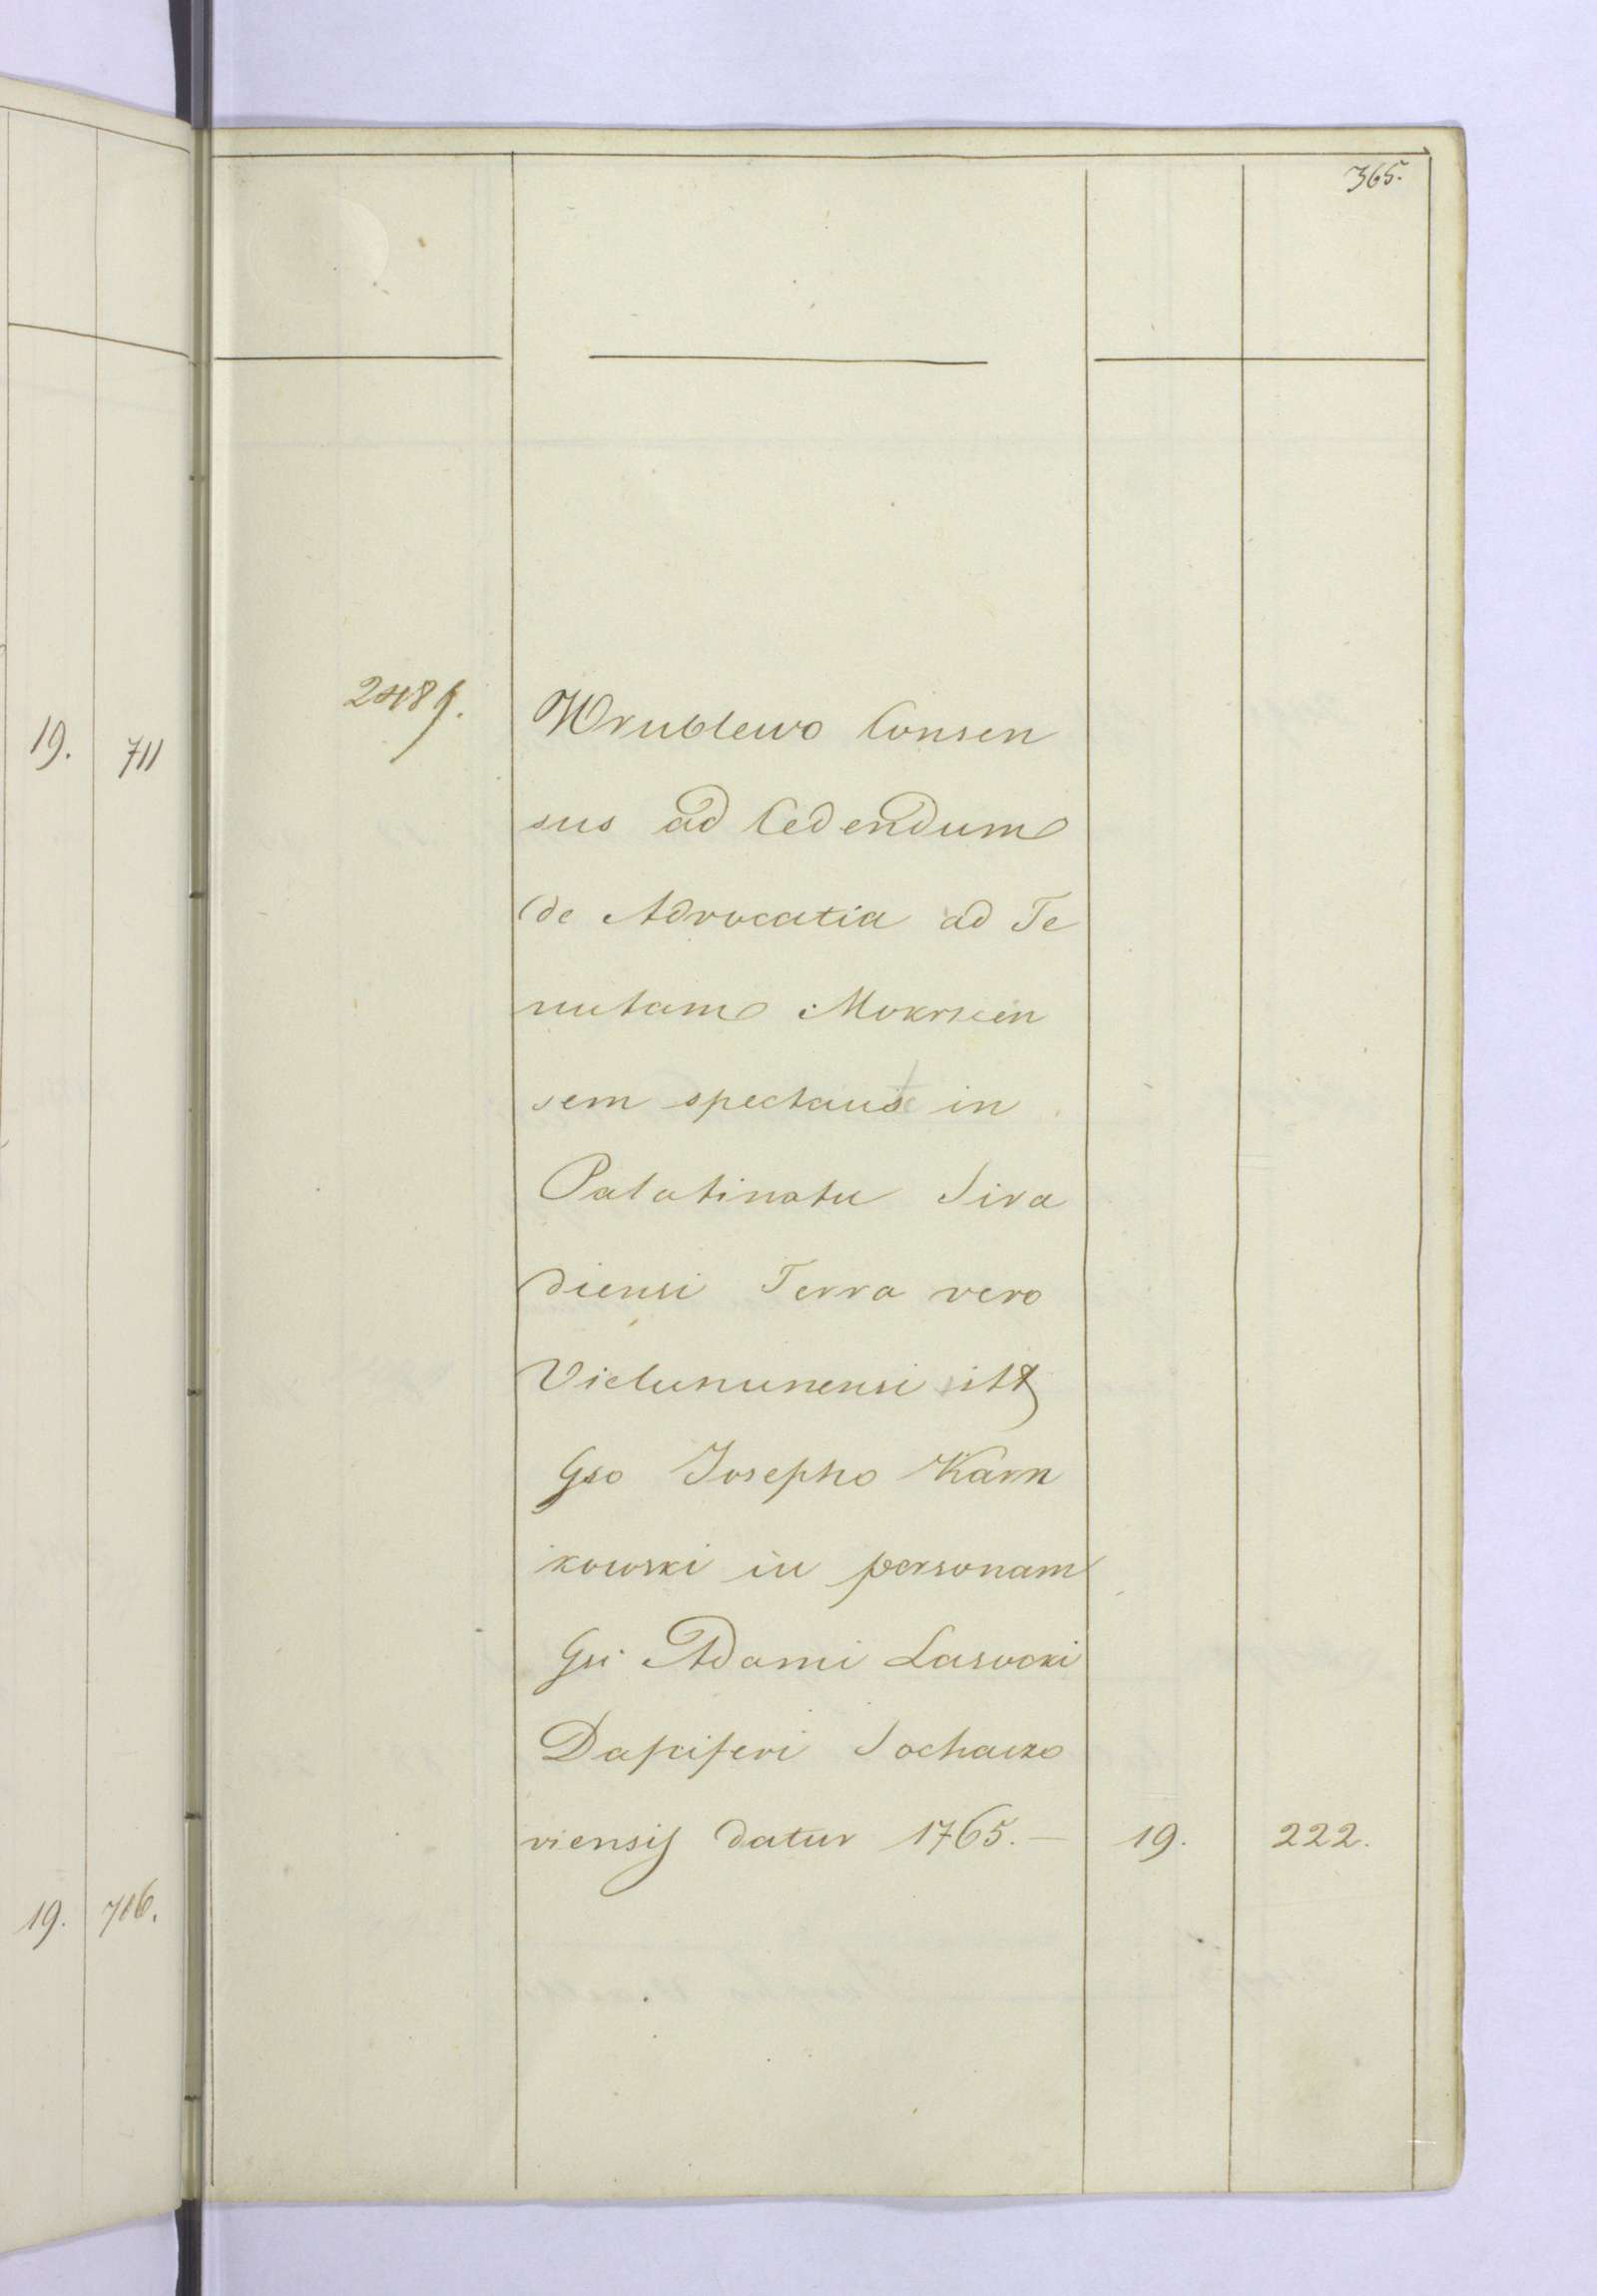 365.
19. 711
2489.
Wrublewo Consen
sus ad Cedendum
de Advocatia ad Te
nutam Mokrscen
sem spectans in
Palatinatu Sira
diensi Terra vero
Vielununensi
Gso Josepho Karn
kowski in personam
Gsi Adami Lasocki
Dapiferi Sochaczo
viensis datur 1765.— 19. 222.
19. 716.